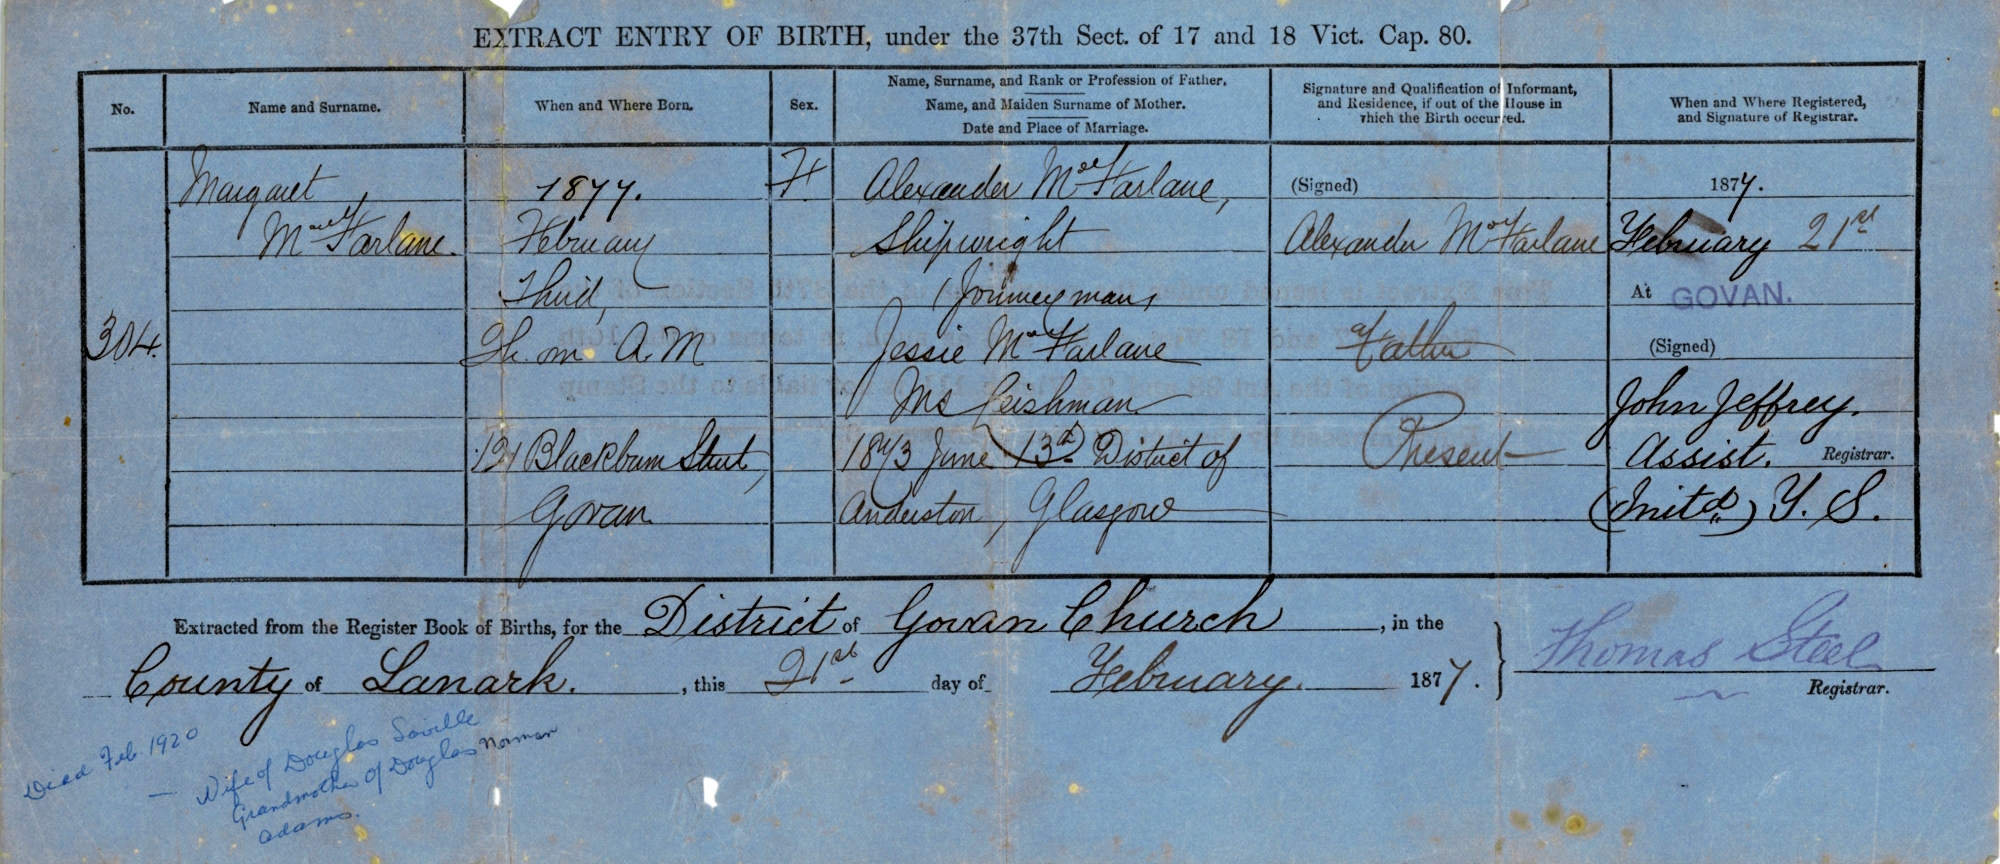 EXTRACT ENTRY OF BIRTH, under the 37th Sect. of 17 and 18 Vict. Cap. 80.
No.
Name and Surname.
When and Where Born.
Sex.
Name, Surname, and Rank or Profession of Father.
Name, and Maiden Surname of Mother.
Date and Place of Marriage.
Signature and Qualification of Informant,
and Residence, if out of the House in
which the Birth occurred.
When and Where Registered,
and Signature of Registrar.
304.
Margaret
MacFarlane.
1877.
February
Third,
9h. m A.M
121 Blackburn Street,
Govan
F
Alexander MacFarlane,
Shipwright
(Journeyman)
Jessie MacFarlane
Ms Leishman
1873 June 13th District of
Anderston, Glasgow
(Signed)
Alexander MacFarlane
Father
Present
1877.
February 21st
At GOVAN.
(Signed)
John Jeffrey.
Assist. Registrar.
(Initd) Y. S.
Extracted from the Register Book of Births, for the District of Govan Church, in the
County of Lanark., this 21st day of February. 1877.
Thomas Steel
Registrar.
Died Feb. 1920
— Wife of Douglas Saville
Grandmother of Douglas Norman
Adams.